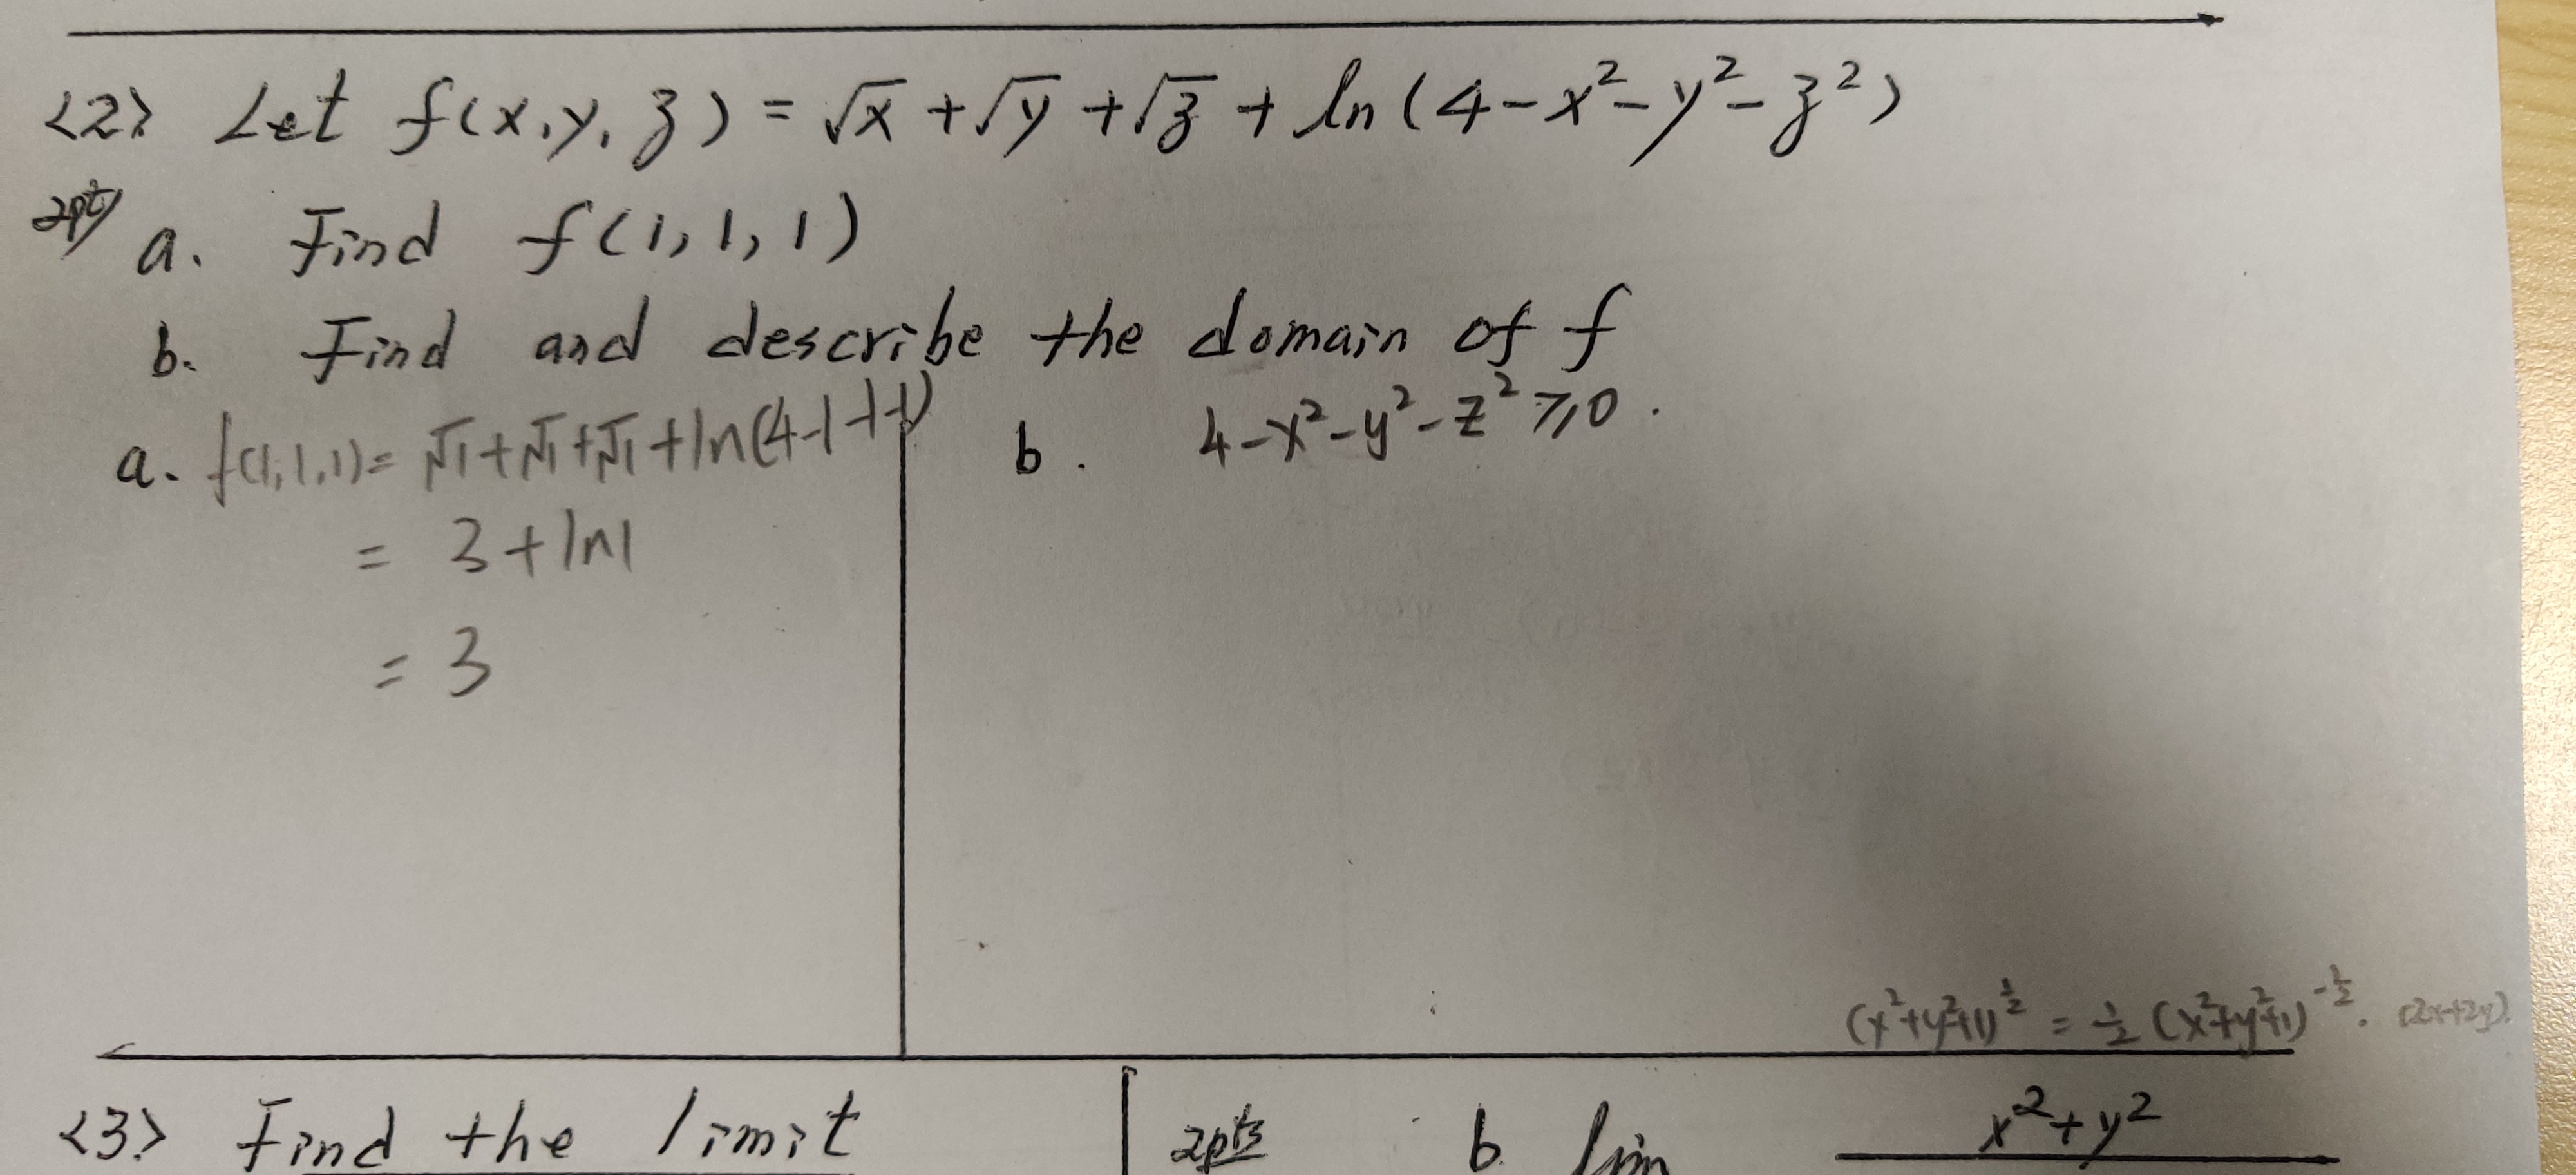 <2> Let f(x,y,z) = √x + √y + √z + ln(4-x²-y²-z²)
2pts
a. Find f(1,1,1)
b. Find and describe the domain of f
a. f(1,1,1)= √1+√1+√1+ln(4-1-1-1)
= 3+ln1
= 3
b. 4-x²-y²-z² ⩾0.
(x²+y²+1)^½ = ½ (x²+y²+1)^-½ · (2x+2y)
<3> Find the limit
2pts b. lim x²+y²